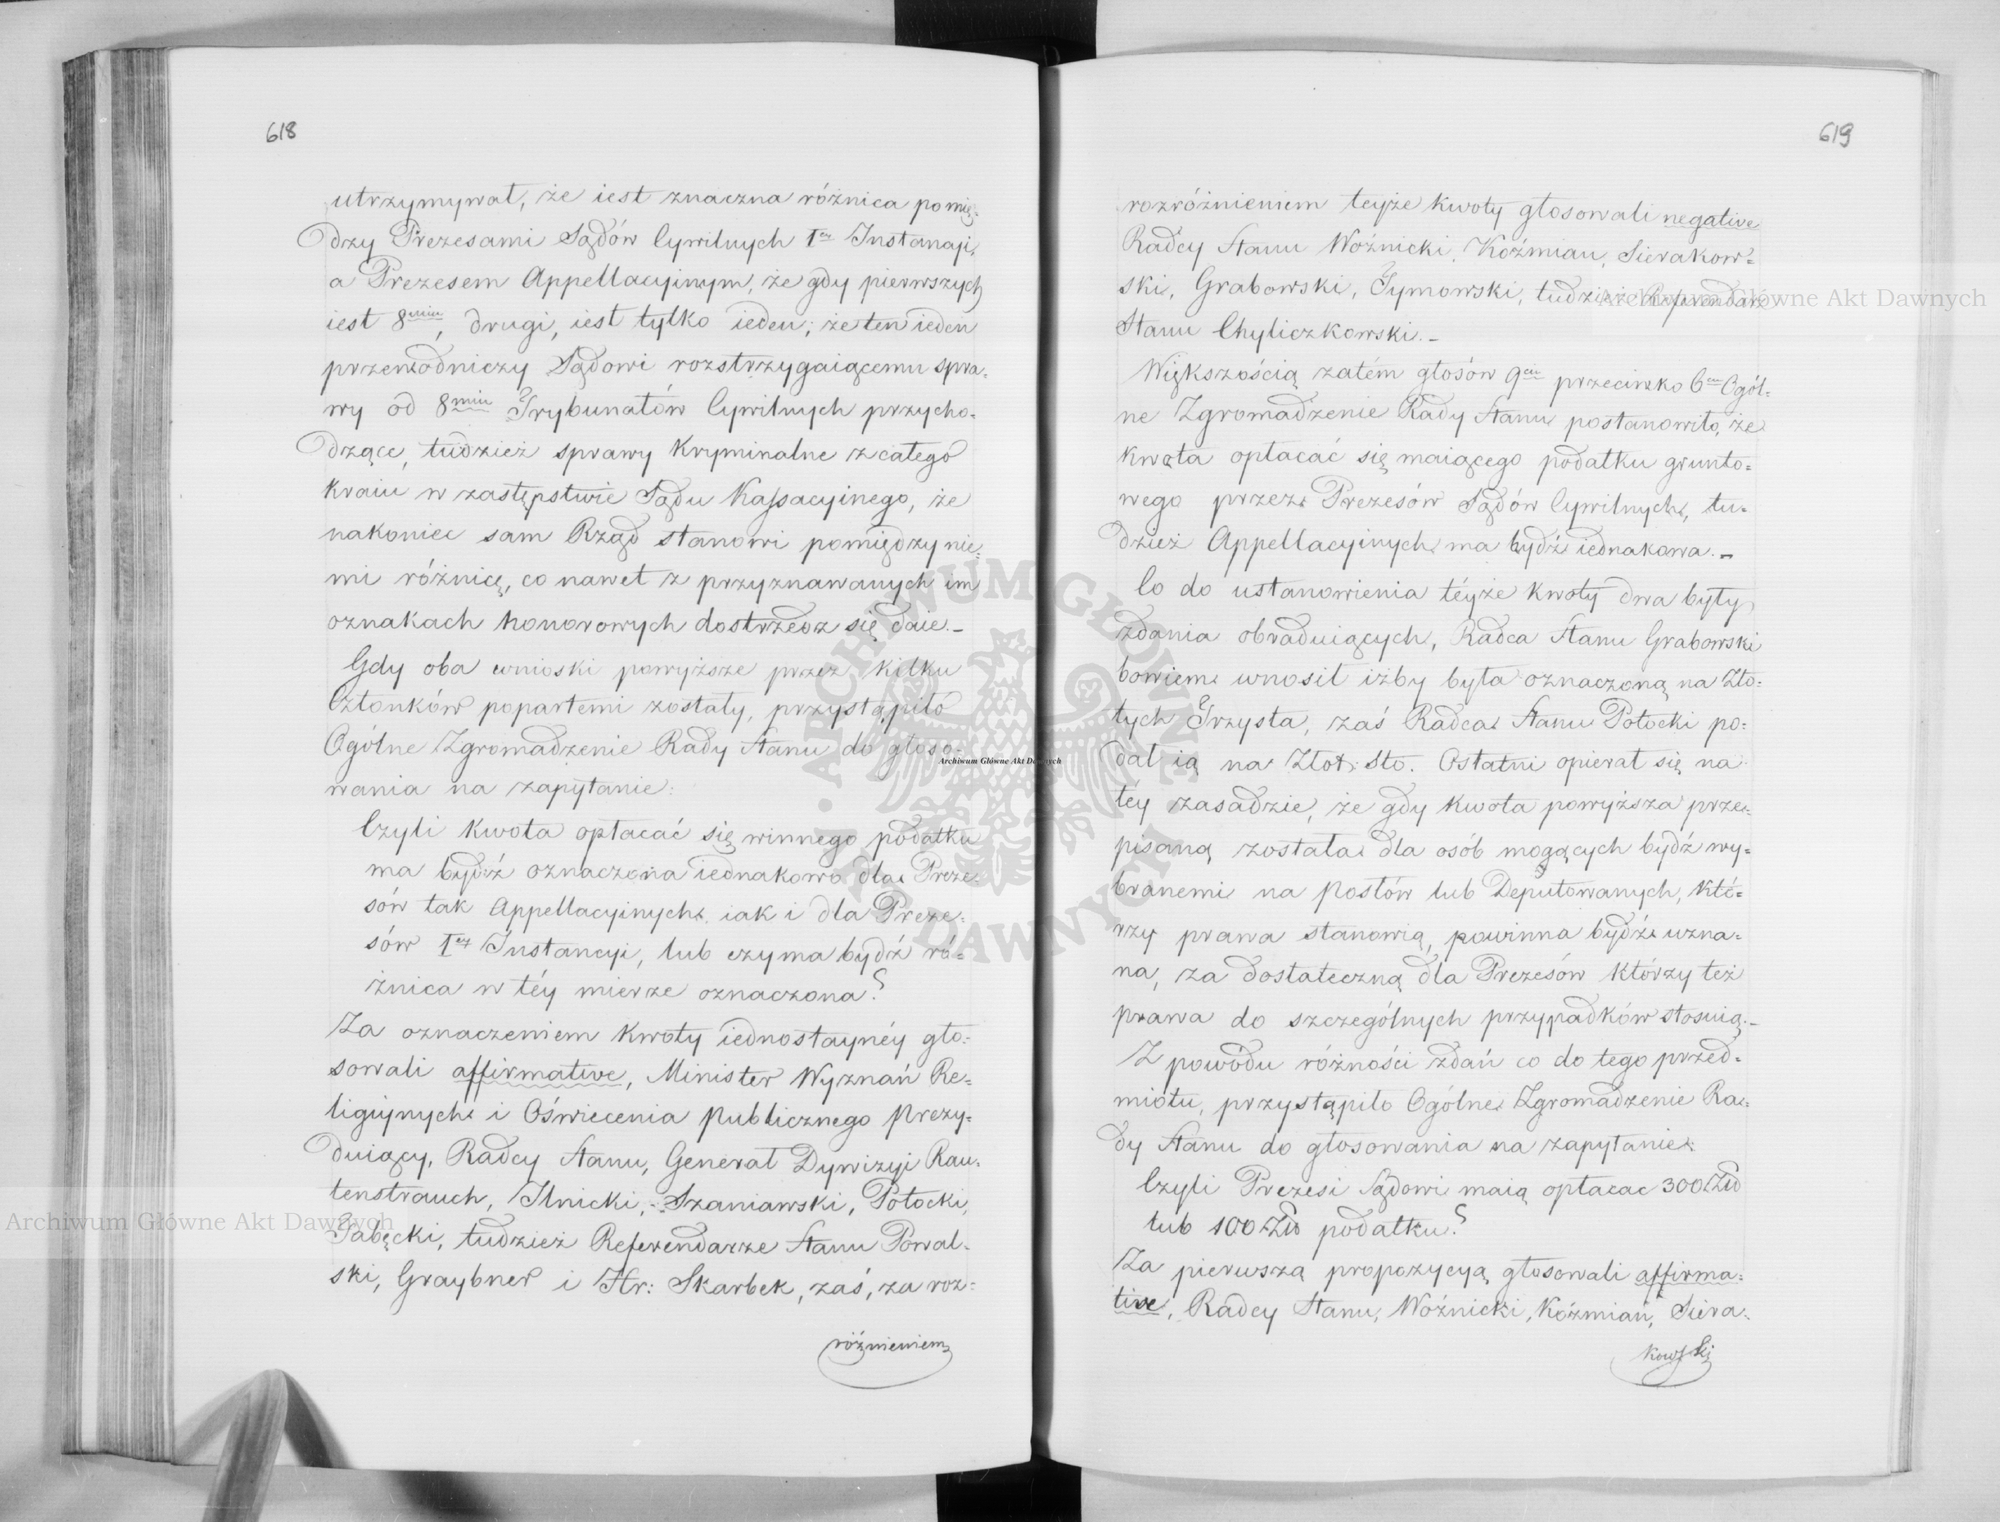 618
utrzymywał, że iest znaczna różnica pomię-
dzy Prezesami Sądów Cywilnych Iey Instancyi,
a Prezesem Appellacyinym, że gdy pierwszych
iest 8miu, drugi, iest tylko ieden; że ten ieden
przewodniczy Sądowi rozstrzygaiącemu spra-
wy od 8miu Trybunałów Cywilnych przycho-
dzące, tudzież sprawy Kryminalne z całego
Kraiu w zastępstwie Sądu Kassacyinego, że
nakoniec sam Rząd stanowi pomiędzy nie-
mi różnicę, co nawet z przyznawanych im
oznakach honorowych dostrzedz się daie.–
Gdy oba wnioski powyższe przez kilku
Członków popartemi zostały, przystąpiło
Ogólne Zgromadzenie Rady Stanu do głoso-
wania na zapytanie:
Czyli Kwota opłacać się winnego podatku
ma bydź oznaczona iednakowo dla Preze-
sów tak Appellacyinych iak i dla Preze-
sów Iey Instancyi, lub czy ma bydź ró-
żnica w téy mierze oznaczona?
Za oznaczeniem Kwoty iednostaynéy gło-
sowali affirmative, Minister Wyznań Re-
ligiynych i Oświecenia Publicznego Prezy-
duiący, Radcy Stanu, Generał Dywizyi Rau-
tenstrauch, Ilnicki, Szaniawski, Potocki,
Tabęcki, tudzież Referendarze Stanu Powal-
ski, Graybner i Hr: Skarbek, zaś, za roz-
różnieniem
619
rozróżnieniem teyże Kwoty głosowali negative
Radcy Stanu Woźnicki, Koźmian, Sierakow-
ski, Grabowski, Tymowski, tudzież Referendarz
Stanu Chyliczkowski.–
Większością zatém głosów 9ciu przeciwko 6ciu Ogól-
ne Zgromadzenie Rady Stanu postanowiło, że
Kwota opłacać się maiącego podatku grunto-
wego przez Prezesów Sądów Cywilnych, tu-
dzież Appellacyinych ma bydź iednakowa.–
Co do ustanowienia téyże Kwoty dwa były
zdania obraduiących, Radca Stanu Grabowski
bowiem wnosił iżby była oznaczoną na Zło-
tych Trzysta, zaś Radca Stanu Potocki po-
dał ią na Złot: Sto. Ostatni opierał się na
téy zasadzie, że gdy Kwota powyższa prze-
pisaną została dla osób mogących bydź wy-
branemi na Posłów lub Deputowanych, Któ-
rzy prawa stanowią, powinna bydź uzna-
na, za dostateczną dla Prezesów Którzy też
prawa do szczególnych przypadków stosuią.–
Z powodu różności zdań co do tego przed-
miotu, przystąpiło Ogólne Zgromadzenie Ra-
dy Stanu do głosowania na zapytanie:
Czyli Prezesi Sądowi maią opłacac 300 Złt
lub 100 Złt podatku?
Za pierwszą propozycyą głosowali affirma-
tive, Radcy Stanu, Woźnicki, Koźmian, Siera-
kowski
Archiwum Główne Akt Dawnych
Archiwum Główne Akt Dawnych
Archiwum Główne Akt Dawnych
ARCHIWUM GŁÓWNE AKT DAWNYCH